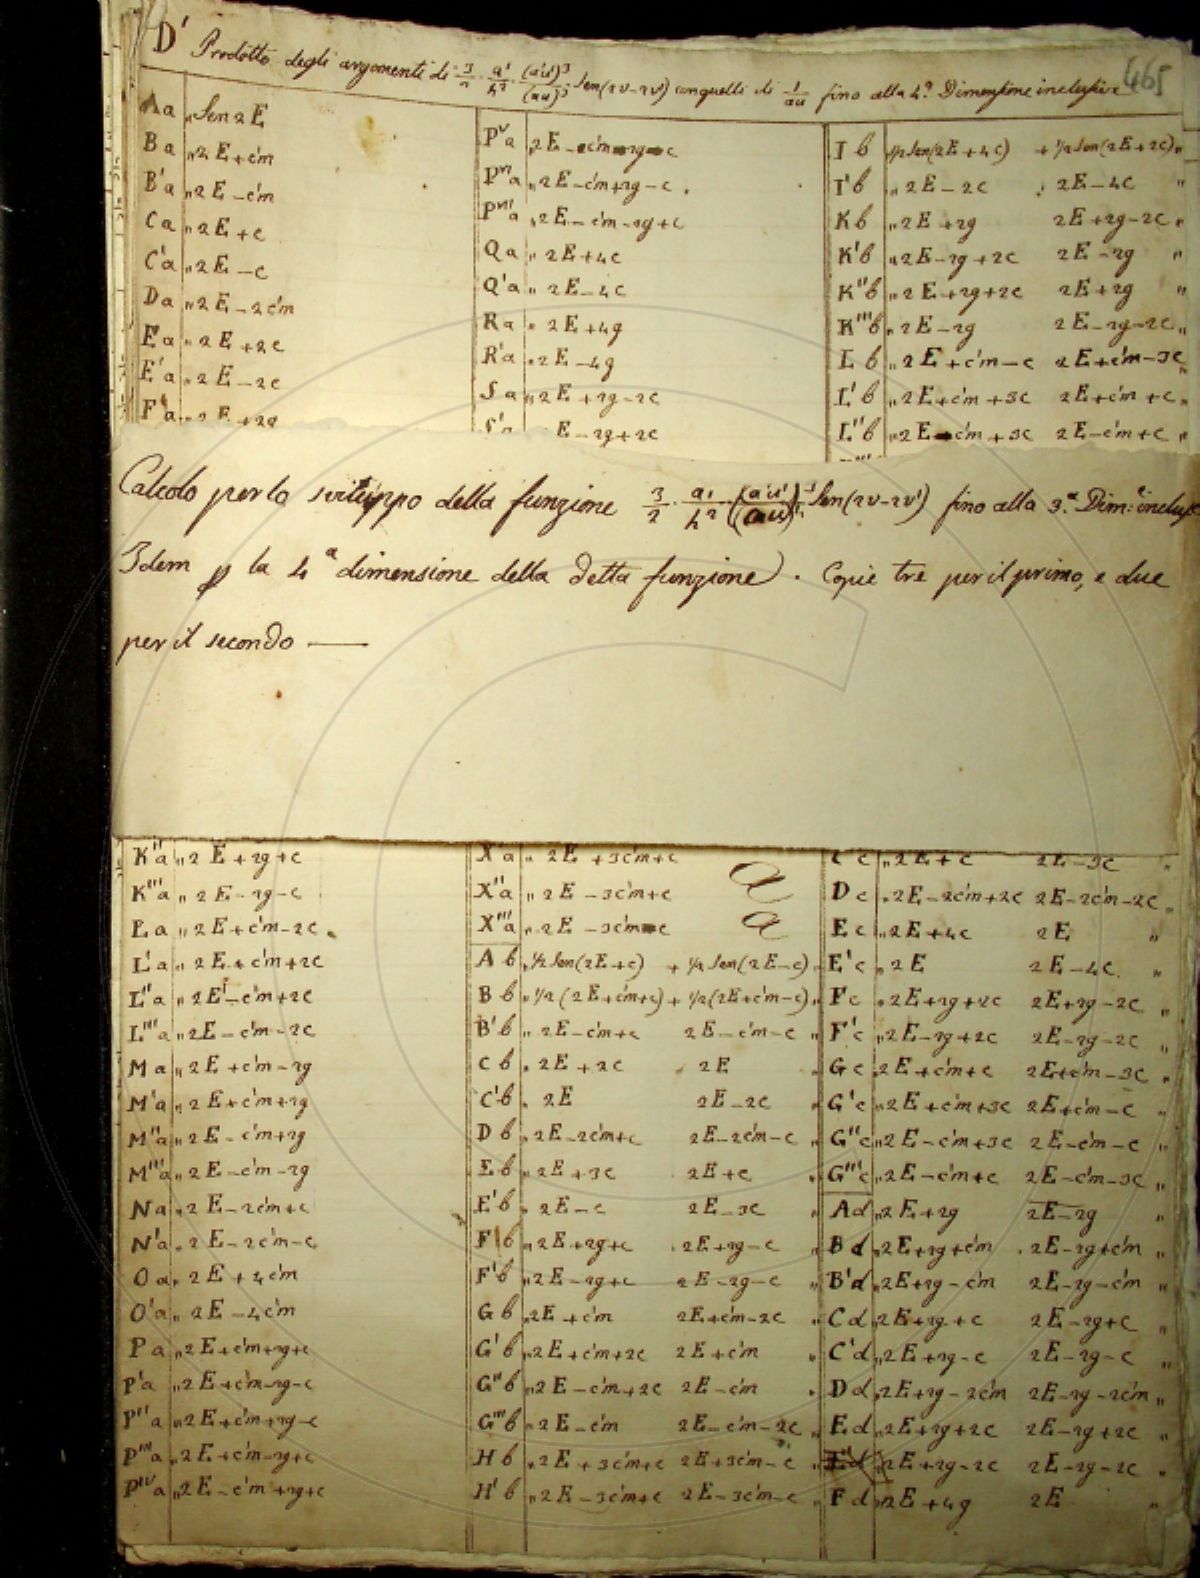 D' Prodotto degli argomenti di 3/2 · a'/h² · (a'u')³/(au)³ Sen(2v-2v') con quelli di 1/au fino alla 4ª Dimensione inclusive 465
Aa „ Sen 2E
Ba „ 2E+c'm
B'a „ 2E-c'm
Ca „ 2E+c
C'a „ 2E-c
Da „ 2E-2c'm
Ea „ 2E+2c
E'a „ 2E-2c
Fa „ 2E+2g
P^v a „ 2E-c'm-2g-c
P^vi a „ 2E-c'm+2g-c
P^vii a „ 2E-c'm-2g+c
Qa „ 2E+4c
Q'a „ 2E-4c
Ra „ 2E+4g
R'a „ 2E-4g
Sa „ 2E+2g-2c
S'a „ 2E-2g+2c
Ib ½Sen(2E+4c) + ½Sen(2E+2c) „
I'b „ 2E-2c 2E-4c „
Kb „ 2E+2g 2E+2g-2c „
K'b „ 2E-2g+2c 2E-2g „
K''b „ 2E+2g+2c 2E+2g „
K'''b „ 2E-2g 2E-2g-2c „
Lb „ 2E+c'm-c 2E+c'm-3c „
L'b „ 2E+c'm+3c 2E+c'm+c „
L''b „ 2E-c'm+3c 2E-c'm+c „
Calcolo per lo sviluppo della funzione 3/2 · a'/h² (a'u')³/(au)³ Sen(2v-2v') fino alla 3ª Dim.e inclus.
Idem p la 4ª dimensione della detta funzione. Copie tre per il primo, e due
per il secondo —
K''a „ 2E+2g+c
K'''a „ 2E-2g-c
La „ 2E+c'm-2c
L'a „ 2E+c'm+2c
L''a „ 2E-c'm+2c
L'''a „ 2E-c'm-2c
Ma „ 2E+c'm-2g
M'a „ 2E+c'm+2g
M''a „ 2E-c'm+2g
M'''a „ 2E-c'm-2g
Na „ 2E-2c'm+c
N'a „ 2E-2c'm-c
Oa „ 2E+4c'm
O'a „ 2E-4c'm
Pa „ 2E+c'm+2g+c
P'a „ 2E+c'm-2g-c
P''a „ 2E+c'm+2g-c
P'''a „ 2E+c'm-2g+c
P^iv a „ 2E-c'm+2g+c
X'a „ 2E+3c'm+c
X''a „ 2E-3c'm+c a
X'''a „ 2E-3c'm-c a
Ab „ ½Sen(2E+c) + ½Sen(2E-c) „
Bb „ ½(2E+c'm+c) + ½(2E+c'm-c) „
B'b „ 2E-c'm+c 2E-c'm-c „
Cb „ 2E+2c 2E „
C'b „ 2E 2E-2c „
Db „ 2E-2c'm+c 2E-2c'm-c „
Eb „ 2E+3c 2E+c „
E'b „ 2E-c 2E-3c „
Fb „ 2E+2g+c 2E+2g-c
F'b „ 2E-2g+c 2E-2g-c „
Gb „ 2E+c'm 2E+c'm-2c „
G'b „ 2E+c'm+2c 2E+c'm „
G''b „ 2E-c'm+2c 2E-c'm „
G'''b „ 2E-c'm 2E-c'm-2c „
Hb „ 2E+3c'm+c 2E+3c'm-c „
H'b „ 2E-3c'm+c 2E-3c'm-c „
Cc „ 2E+c 2E-3c „
Dc „ 2E-2c'm+2c 2E-2c'm-2c „
Ec „ 2E+4c 2E „
E'c „ 2E 2E-4c „
Fc „ 2E+2g+2c 2E+2g-2c „
F'c „ 2E-2g+2c 2E-2g-2c „
Gc „ 2E+c'm+c 2E+c'm-3c „
G'c „ 2E+c'm+3c 2E+c'm-c „
G''c „ 2E-c'm+3c 2E-c'm-c „
G'''c „ 2E-c'm+c 2E-c'm-3c „
Ad „ 2E+2g 2E-2g „
Bd „ 2E+2g+c'm 2E-2g+c'm „
B'd „ 2E+2g-c'm 2E-2g-c'm „
Cd „ 2E+2g+c 2E-2g+c „
C'd „ 2E+2g-c 2E-2g-c „
Dd „ 2E+2g-2c'm 2E-2g-2c'm „
Ed „ 2E+2g+2c 2E-2g+2c „
E'd „ 2E+2g-2c 2E-2g-2c „
Fd „ 2E+4g 2E „